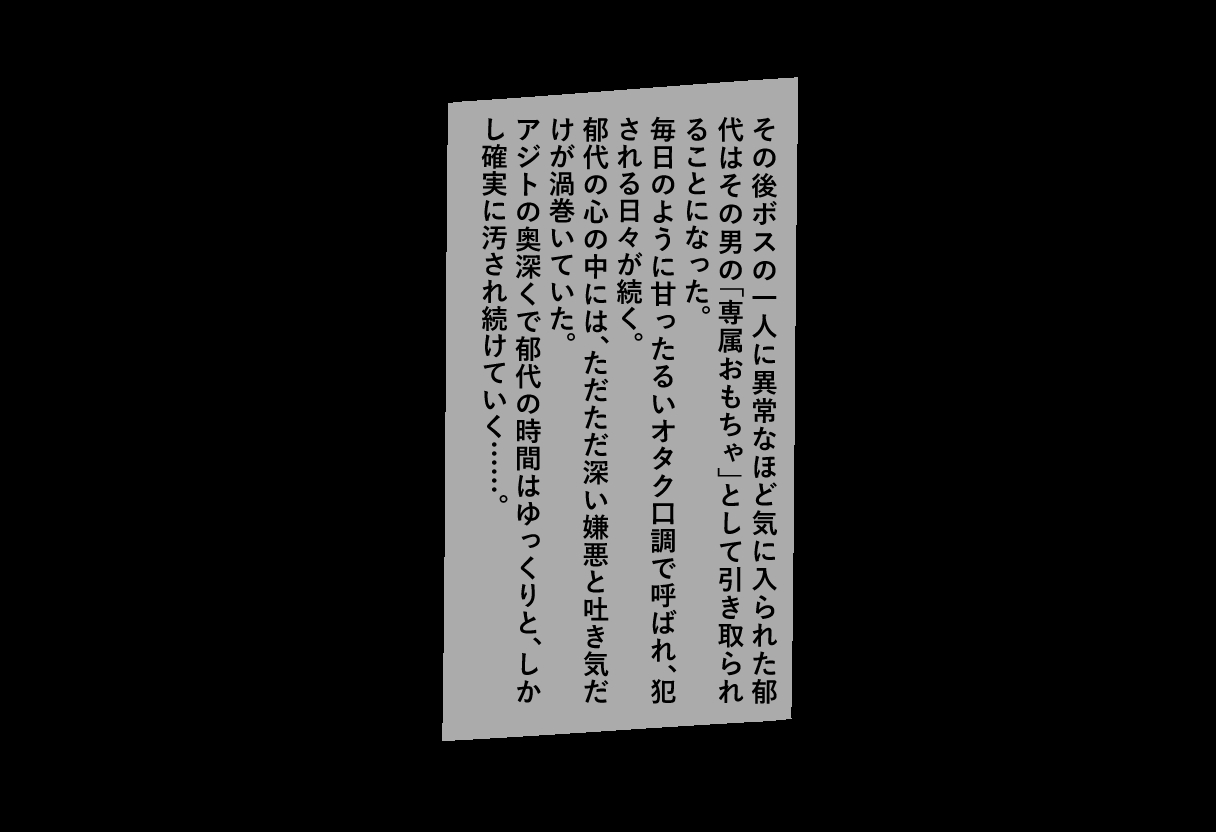 その後ボスの一人に異常なほど気に入られた郁
代はその男の「専属おもちゃ」として引き取られ
ることになった。
毎日のように甘ったるいオタク口調で呼ばれ、犯
される日々が続く。
郁代の心の中には、ただただ深い嫌悪と吐き気だ
けが渦巻いていた。
アジトの奥深くで郁代の時間はゆっくりと、しか
し確実に汚され続けていく……。